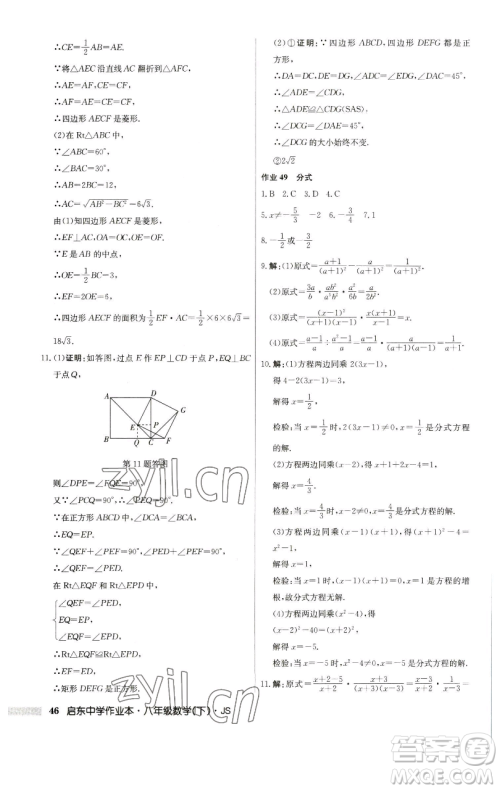 ∴CE=1/2AB=AE.
∵将△AEC沿直线AC翻折到△AFC,
∴AE=AF=CE=CF.
∴四边形AECF是菱形.
(2)在Rt△ABC中,
∵∠ABC=60°,
∴∠BAC=30°.
∴AB=2BC=12,
∴AC=√(AB²-BC²)=6√3.
由(1)知四边形AECF是菱形,
∴EF⊥AC, OA=OC.
∵E是AB的中点,
∴OE=1/2BC=3.
∴EF=2OE=6.
∴四边形AECF的面积为1/2EF·AC=1/2×6×6√3=
18√3.
11.(1)证明:如答图,过点E作EP⊥CD于点P,EQ⊥BC
于点Q,
A D G E P B Q C F
第11题答图
则∠DPE=∠FQE=90°.
又∵∠PCQ=90°,
∴∠PEQ=90°.
∵在正方形ABCD中,
∴EQ=EP.
∵∠DEF=90°,
∴∠QEF=∠PED.
在Rt△EQF和Rt△EPD中,
{∠QEF=∠PED,
EQ=EP,
∠EQF=∠EPD,
∴Rt△EQF≌Rt△EPD,
∴EF=ED.
∴矩形DEFG是正方形.
(2)①证明:∵四边形ABCD,四边形DEFG都是正
方形,
∴DA=DC,DE=DG,∠DAC=45°,
∴∠ADE=∠CDG.
∴△ADE≌△CDG(SAS).
∴∠DCG=∠DAC=45°,
∴∠DCG的大小始终不变.
②2√2
作业49 分式
1.B 2.C 3.D 4.C
5.x≠-5/3 -2 6.-3/4 7.1
8.-1/2或-3/2
9.解:(1)原式=(a+1)/(a+1)²=1/(a+1).
(2)原式=3a/b·ab/(a²b²)·a²/(6b)=a²/(2b²).
(3)原式=(x-1)²/((x+1)(x-1))·x(x+1)/(x-1)=x.
(4)原式=(a-1)/a÷(a-1)²/a=1/(a-1).
10.解:(1)方程两边同乘2(3x-1),得
4-2(3x-1)=3.
解得x=1/2.
检验:当x=1/2时,2(3x-1)≠0,x=1/2是分式方程
的解.
(2)方程两边同乘(x-2),得
解得x=4/3.
检验:当x=4/3时,x-2≠0,x=4/3是分式方程的解.
(3)方程两边同乘(x+1)(x-1),得
解得x=1.
检验:当x=1时,(x+1)(x-1)=0,x=1是分式方程
的增根,故分式方程无解.
(4)方程两边同乘(x²-4),得
(x-2)²-40=(x+2)².
解得x=-5.
检验:当x=-5时,x²-4≠0,x=-5是分式方程的解.
46 启东中学作业本·八年级数学(下)·JS
zyjl.cn
答案圈
MXQE.COM